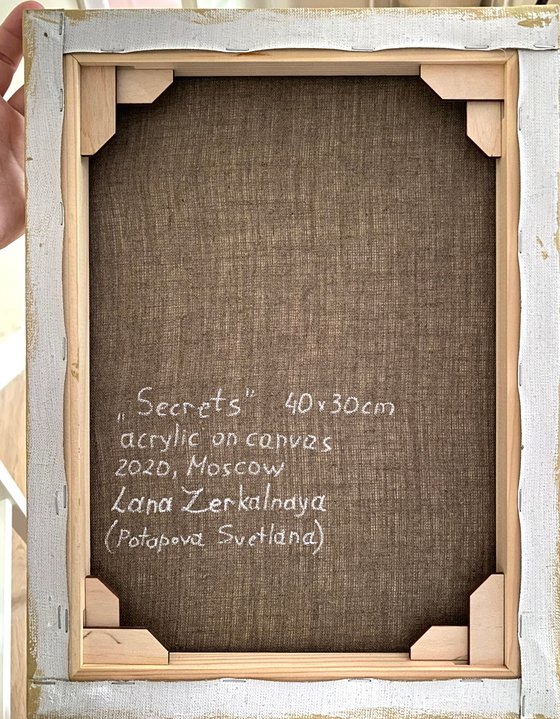 „Secrets" 40x30cm
acrylic on canvas
2020, Moscow
Lana Zerkalnaya
(Potapova Svetlana)